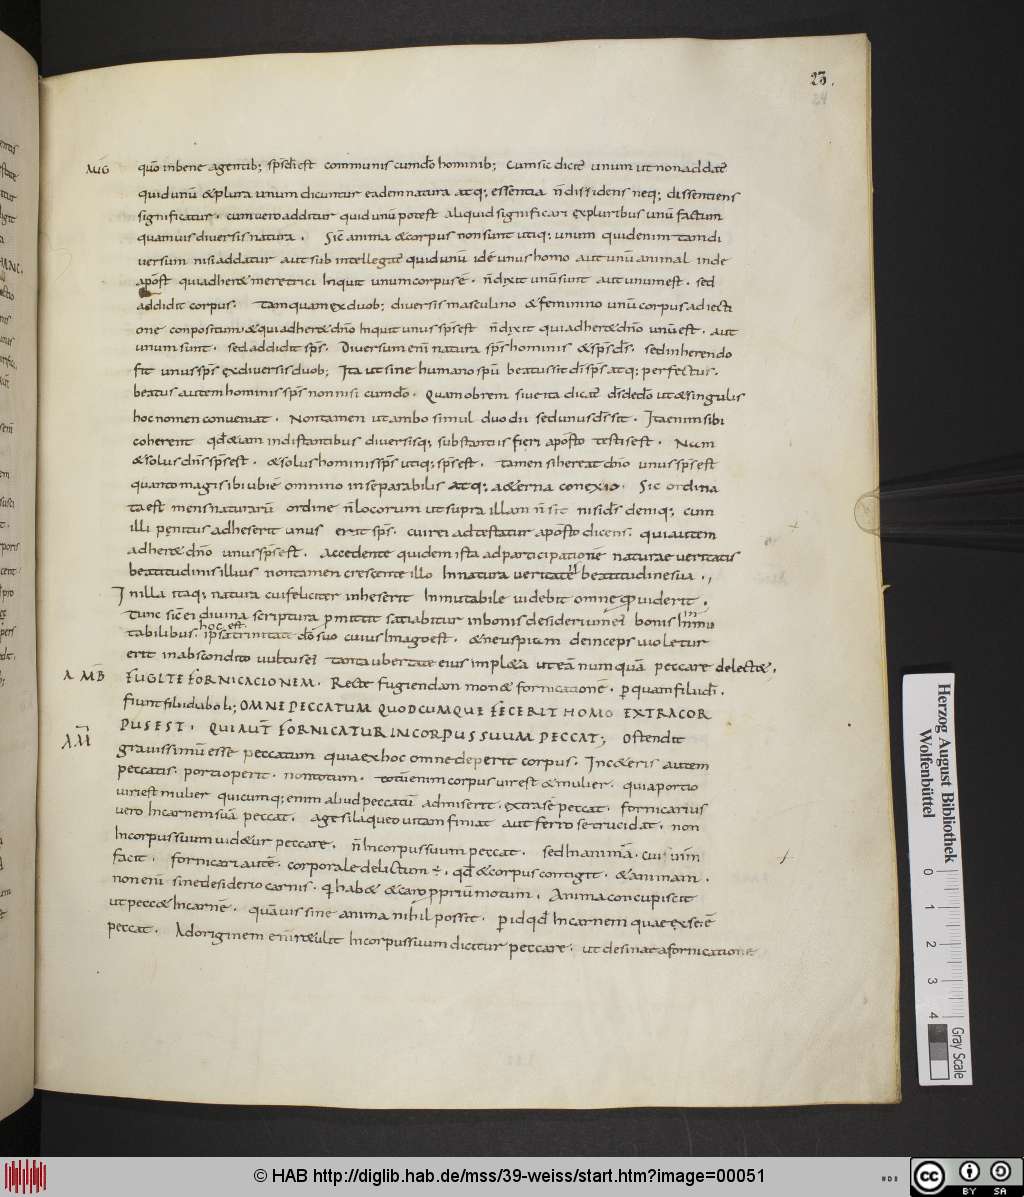 23.
24
AUG quo inbene agentib; sps di est communis cumdo hominib; Cumsic dicit unum ut non addat
quid unū & plura unum dicuntur eadem natura atq; essentia n̄ dissidens neq; dissentiens
significatur. cum vero additur quid unū potest aliquid significari ex pluribus unū factum
quamvis diversis natura. Sic anima & corpus non sunt utiq; unum quid enim tam di
versum nisi addatur aut subintellegat quid unū idē unus homo aut unū animal inde
apost qui adher& meretrici Inquit unum corpusē. n̄ dixit unū sunt aut unum est. sed
addidit corpus. Tamquam ex duob; diversis masculino & feminino unū corpus adiecti
one conpositum & qui adher& dn̄o Inquit unus sps est n̄ dixit qui adher& dn̄o unū est. aut
unum sunt. sed addidit sps. Diversum enī natura sps hominis & sps di. sed inherendo
fit unus sps ex diversis duob; Ita ut sine humano spū beatus sit di sps atq; perfectus.
beatus autem hominis sps non nisi cum do. Quamobrem si ue ita dicat ds dedo ut & singulis
hoc nomen conveniat. Non tamen ut ambo simul duo dii sed unus ds sit. Ita enim sibi
coherent qd & iam in distantibus diversisq; substantiis fieri aposto testis est. Num
& solus dns sps est. & solus hominis sps utiq; sps est. tamen si hereat dn̄o unus sps est
quanto magis ibi ubi ē omnino inseparabilis atq; a&erna conexio. Sic ordina
ta est mens naturarū ordine n̄ locorum ut supra illam n̄ sit nisi ds deniq; cum
illi penitus adheserit unus erit sps. cui rei adtestatur aposto dicens. qui autem
adher& dn̄o unus sps est. Accedente quidem ista ad participationē naturae veritatis
beatitudinis illius non tamen crescente illo In natura veritate beatitudine sua.
In illa itaq; natura cui feliciter inheserit Inmutabile videbit omne qd viderit.
Tunc sic ei divina scriptura pmittit satiabitur in bonis desiderium ei bonis Inmu
tabilibus. hoc est ipsa trinitate do suo cuius Imago est. & ne uspium deinceps violetur
erit in abscondito vultus ei tanta ubertate eius impl&a ut eā numquā peccare delect&.
AMB FUGITE FORNICACIONEM. Recte fugiendam mon& fornicationē. p quam filii di.
fiunt filii diaboli; OMNE PECCATUM QUODCUMQUE FECERIT HOMO EXTRA COR
AM PUS EST. QUI AUT FORNICATUR IN CORPUS SUUM PECCAT; Ostendit
gravissimū esse peccatum quia ex hoc omne deperit corpus. In c&eris autem
peccatis. portio perit. non totum. totū enim corpus vir est & mulier. quia portio
viri est mulier quicumq; enim aliud peccatū admiserit. extra sē peccat. fornicarius
vero In carnem suā peccat. Age si laqueo vitam finiat aut ferro se trucidat. non
In corpus suum vid&ur peccare. n̄ In corpus suum peccat. sed In animā. cui vim
facit. fornicari autē. corporale delictum ÷. qd & corpus contigit. & animam.
non enī sine desiderio carnis. q hab& & caro ppriū motum. Anima concupiscit
ut pecc& In carnē. quāvis sine anima nihil possit. p id qd In carnem quae ex se ē
peccat. Ad originem enī r&ulit In corpus suum dicitur peccare. ut desinat a fornicatione
Herzog August Bibliothek
Wolfenbüttel
0 1 2 3 4
Gray Scale
© HAB http://diglib.hab.de/mss/39-weiss/start.htm?image=00051
cc BY SA